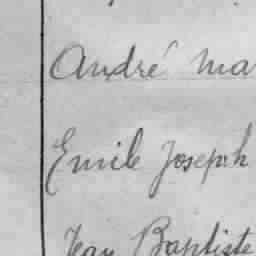 André Ma
Emile Joseph
Jean Baptiste